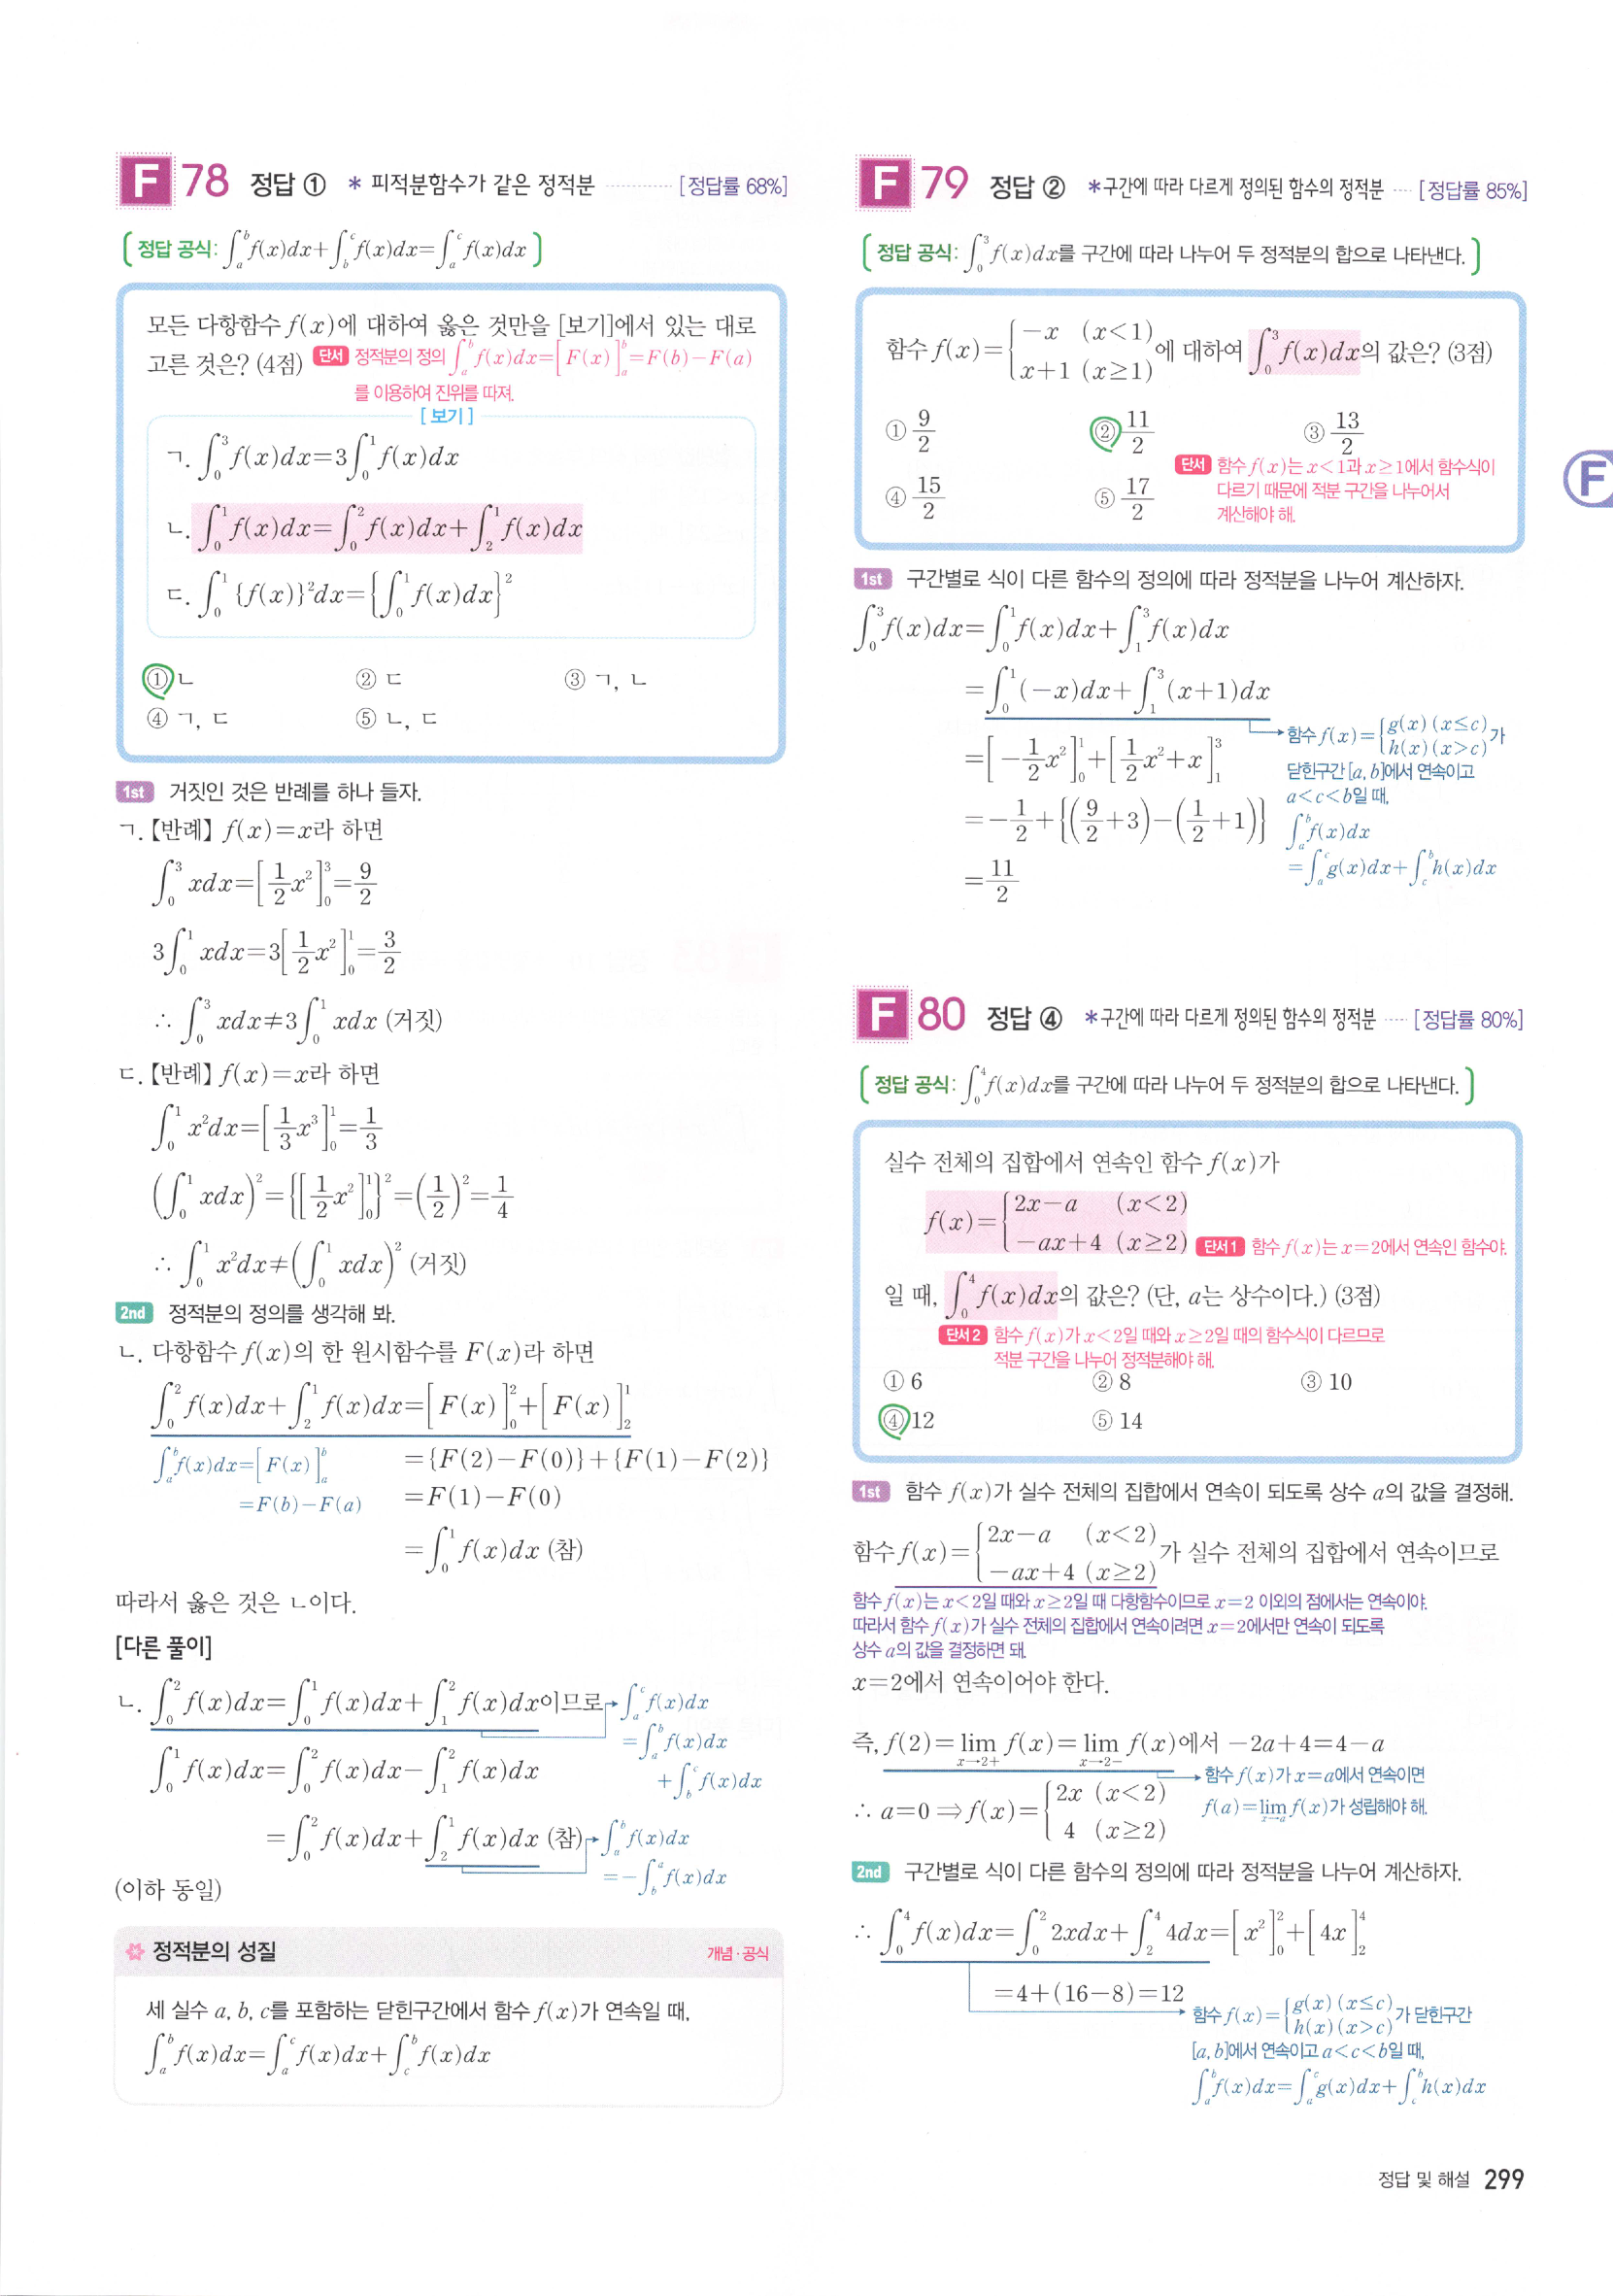 F 78 정답 ① * 피적분함수가 같은 정적분 [정답률 68%]
(정답 공식: ∫_a^b f(x)dx+∫_b^c f(x)dx=∫_a^c f(x)dx)
모든 다항함수 f(x)에 대하여 옳은 것만을 [보기]에서 있는 대로
고른 것은? (4점) 단서 정적분의 정의 ∫_a^b f(x)dx=[F(x)]_a^b=F(b)-F(a)
를 이용하여 진위를 따져.
[보기]
ㄱ. ∫_0^3 f(x)dx=3∫_0^1 f(x)dx
ㄴ. ∫_0^1 f(x)dx=∫_0^2 f(x)dx+∫_2^1 f(x)dx
ㄷ. ∫_0^1 {f(x)}²dx={∫_0^1 f(x)dx}²
① ㄴ ② ㄷ ③ ㄱ, ㄴ
④ ㄱ, ㄷ ⑤ ㄴ, ㄷ
1st 거짓인 것은 반례를 하나 들자.
ㄱ. 【반례】 f(x)=x라 하면
∫_0^3 xdx=[1/2 x²]_0^3=9/2
3∫_0^1 xdx=3[1/2 x²]_0^1=3/2
∴ ∫_0^3 xdx≠3∫_0^1 xdx (거짓)
ㄷ. 【반례】 f(x)=x라 하면
∫_0^1 x²dx=[1/3 x³]_0^1=1/3
(∫_0^1 xdx)²={[1/2 x²]_0^1}²=(1/2)²=1/4
∴ ∫_0^1 x²dx≠(∫_0^1 xdx)² (거짓)
2nd 정적분의 정의를 생각해 봐.
ㄴ. 다항함수 f(x)의 한 원시함수를 F(x)라 하면
∫_0^2 f(x)dx+∫_2^1 f(x)dx=[F(x)]_0^2+[F(x)]_2^1
∫_a^b f(x)dx=[F(x)]_a^b ={F(2)-F(0)}+{F(1)-F(2)}
=F(b)-F(a) =F(1)-F(0)
=∫_0^1 f(x)dx (참)
따라서 옳은 것은 ㄴ이다.
[다른 풀이]
ㄴ. ∫_0^2 f(x)dx=∫_0^1 f(x)dx+∫_1^2 f(x)dx이므로 → ∫_a^c f(x)dx
=∫_a^b f(x)dx
∫_0^1 f(x)dx=∫_0^2 f(x)dx-∫_1^2 f(x)dx +∫_b^c f(x)dx
=∫_0^2 f(x)dx+∫_2^1 f(x)dx (참) → ∫_a^b f(x)dx
=-∫_b^a f(x)dx
(이하 동일)
정적분의 성질 개념·공식
세 실수 a, b, c를 포함하는 닫힌구간에서 함수 f(x)가 연속일 때,
∫_a^b f(x)dx=∫_a^c f(x)dx+∫_c^b f(x)dx
F 79 정답 ② *구간에 따라 다르게 정의된 함수의 정적분 [정답률 85%]
(정답 공식: ∫_0^3 f(x)dx를 구간에 따라 나누어 두 정적분의 합으로 나타낸다.)
함수 f(x)={-x (x<1), x+1 (x≥1)에 대하여 ∫_0^3 f(x)dx의 값은? (3점)
① 9/2 ② 11/2 ③ 13/2
단서 함수 f(x)는 x<1과 x≥1에서 함수식이
다르기 때문에 적분 구간을 나누어서
계산해야 해.
④ 15/2 ⑤ 17/2
F
1st 구간별로 식이 다른 함수의 정의에 따라 정적분을 나누어 계산하자.
∫_0^3 f(x)dx=∫_0^1 f(x)dx+∫_1^3 f(x)dx
=∫_0^1 (-x)dx+∫_1^3 (x+1)dx
=[-1/2 x²]_0^1+[1/2 x²+x]_1^3
=-1/2+{(9/2+3)-(1/2+1)}
=11/2
함수 f(x)={g(x) (x≤c), h(x) (x>c)가
닫힌구간 [a, b]에서 연속이고
a<c<b일 때,
∫_a^b f(x)dx
=∫_a^c g(x)dx+∫_c^b h(x)dx
F 80 정답 ④ *구간에 따라 다르게 정의된 함수의 정적분 [정답률 80%]
(정답 공식: ∫_0^4 f(x)dx를 구간에 따라 나누어 두 정적분의 합으로 나타낸다.)
실수 전체의 집합에서 연속인 함수 f(x)가
f(x)={2x-a (x<2), -ax+4 (x≥2) 단서1 함수 f(x)는 x=2에서 연속인 함수야.
일 때, ∫_0^4 f(x)dx의 값은? (단, a는 상수이다.) (3점)
단서2 함수 f(x)가 x<2일 때와 x≥2일 때의 함수식이 다르므로
적분 구간을 나누어 정적분해야 해.
① 6 ② 8 ③ 10
④ 12 ⑤ 14
1st 함수 f(x)가 실수 전체의 집합에서 연속이 되도록 상수 a의 값을 결정해.
함수 f(x)={2x-a (x<2), -ax+4 (x≥2)가 실수 전체의 집합에서 연속이므로
함수 f(x)는 x<2일 때와 x≥2일 때 다항함수이므로 x=2 이외의 점에서는 연속이야.
따라서 함수 f(x)가 실수 전체의 집합에서 연속이려면 x=2에서만 연속이 되도록
상수 a의 값을 결정하면 돼.
x=2에서 연속이어야 한다.
즉, f(2)=lim_{x→2+} f(x)=lim_{x→2-} f(x)에서 -2a+4=4-a
→ 함수 f(x)가 x=a에서 연속이면
f(a)=lim_{x→a} f(x)가 성립해야 해.
∴ a=0 ⇒ f(x)={2x (x<2), 4 (x≥2)
2nd 구간별로 식이 다른 함수의 정의에 따라 정적분을 나누어 계산하자.
∴ ∫_0^4 f(x)dx=∫_0^2 2xdx+∫_2^4 4dx=[x²]_0^2+[4x]_2^4
=4+(16-8)=12
함수 f(x)={g(x) (x≤c), h(x) (x>c)가 닫힌구간
[a, b]에서 연속이고 a<c<b일 때,
∫_a^b f(x)dx=∫_a^c g(x)dx+∫_c^b h(x)dx
정답 및 해설 299